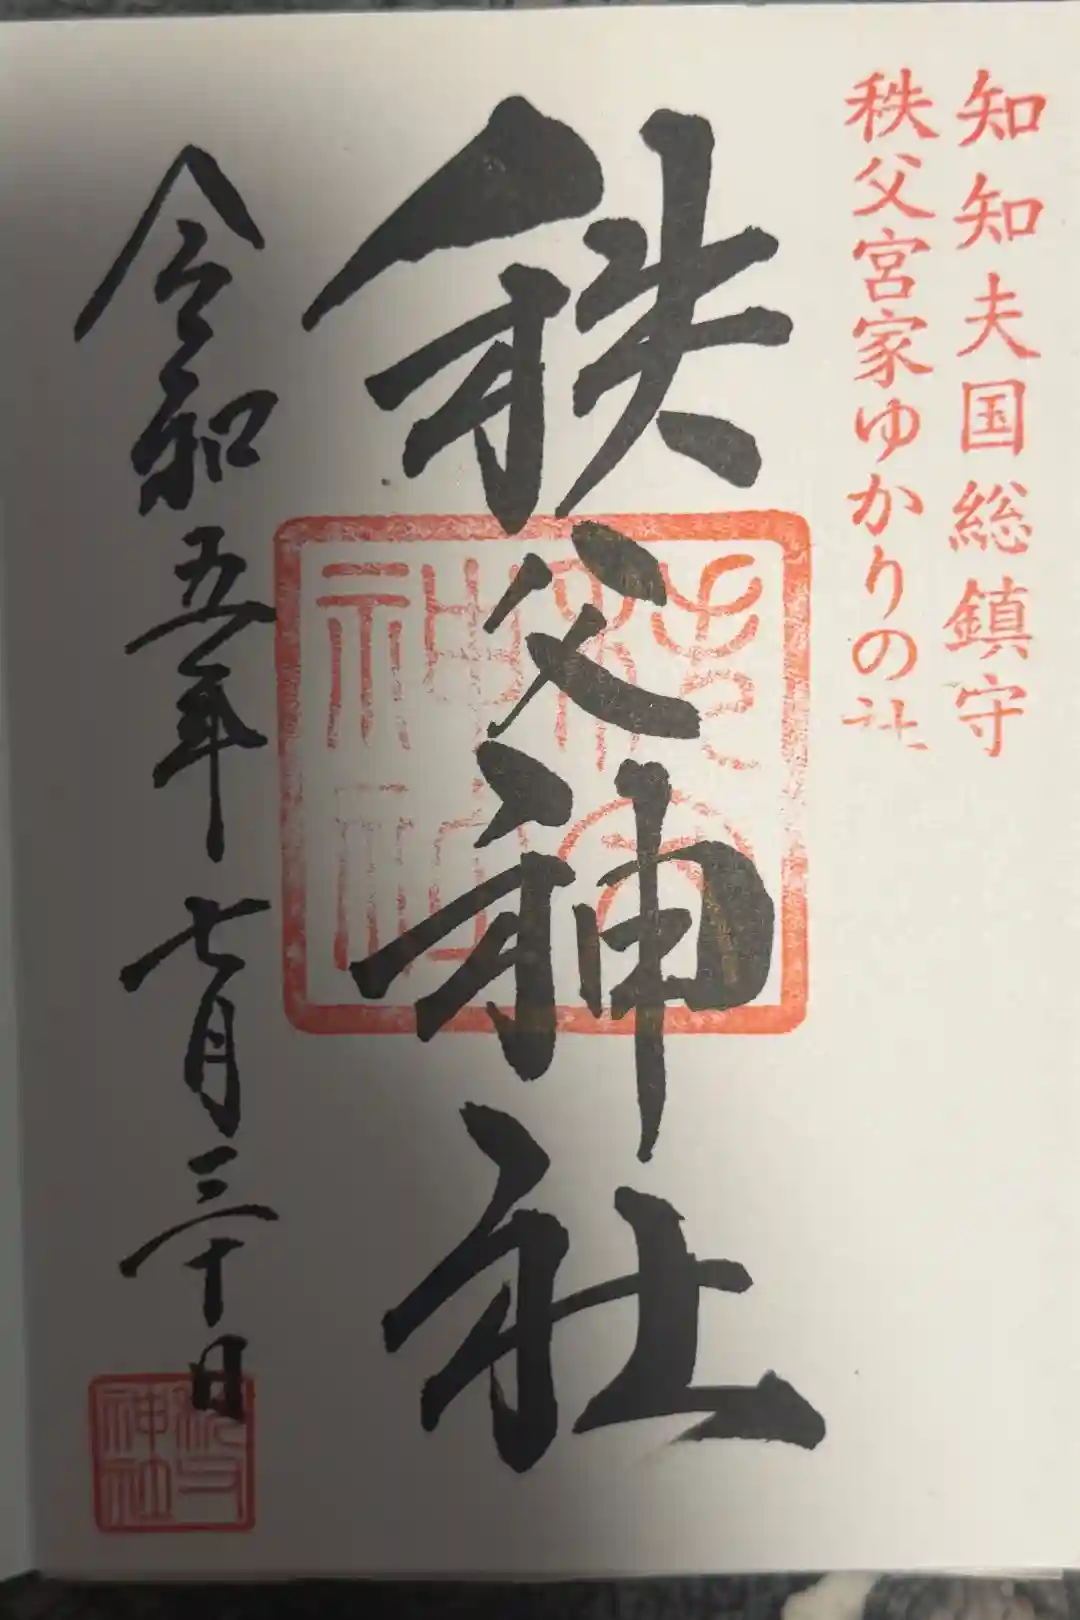 知知夫国総鎮守
秩父宮家ゆかりの社
秩父神社
令和五年七月三十日
秩父
神社